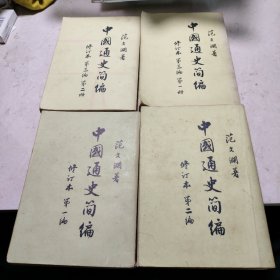 范文澜著
中國通史简编
修订本 第三编 第二册
范文澜著
中國通史简编
修订本 第三编 第一册
范文澜著
中國通史简编
修订本 第一编
范文澜著
中國通史简编
修订本 第二编